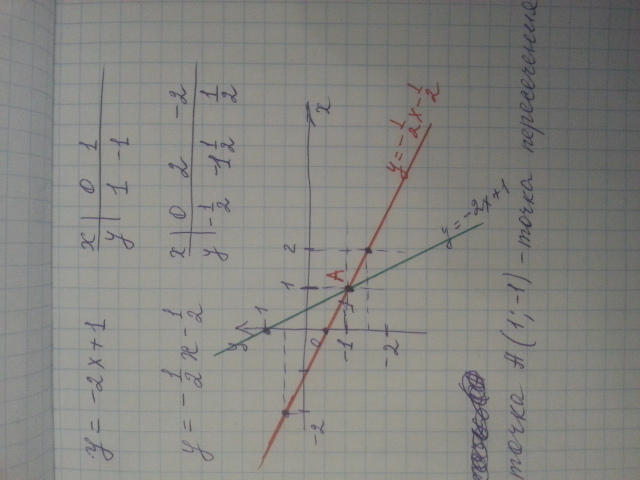 y = -2x+1
x | 0 1
y | 1 -1
y = -1/2 x - 1/2
x | 0 2 -2
y | -1/2 -1 1/2 1/2
y
1
-2
0
1
2
x
-1
-1
-2
A
y = -1/2 x - 1/2
y = -2x+1
точка A (1; -1) - точка пересечения